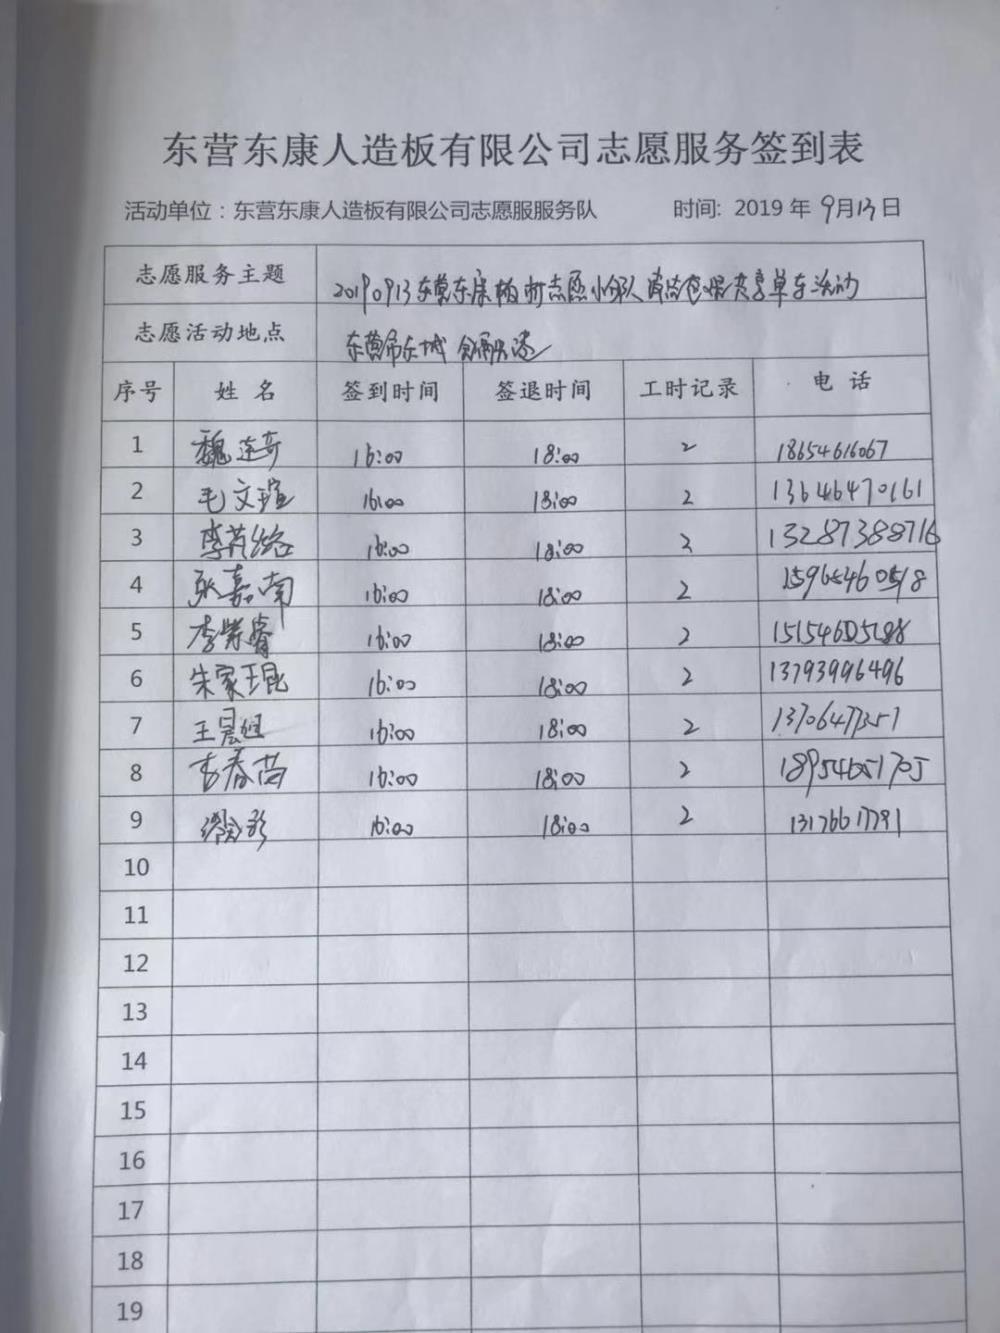 东营东康人造板有限公司志愿服务签到表
活动单位：东营东康人造板有限公司志愿服服务队 时间: 2019 年 9月13日
志愿服务主题 20190913东营东康板材志愿小分队清洁 共享单车活动
志愿活动地点 东营市东城
序号 姓 名 签到时间 签退时间 工时记录 电 话
1 魏连奇 16:00 18:00 2 18654616067
2 毛文瑄 16:00 18:00 2 13646470161
3 李 16:00 18:00 2 13287388716
4 张嘉南 16:00 18:00 2
5 李紫睿 16:00 18:00 2
6 朱家琨 16:00 18:00 2 13793996496
7 王晨旭 16:00 18:00 2 13706477357
8 李春苗 16:00 18:00 2 18954651705
9 16:00 18:00 2 13176617791
10
11
12
13
14
15
16
17
18
19